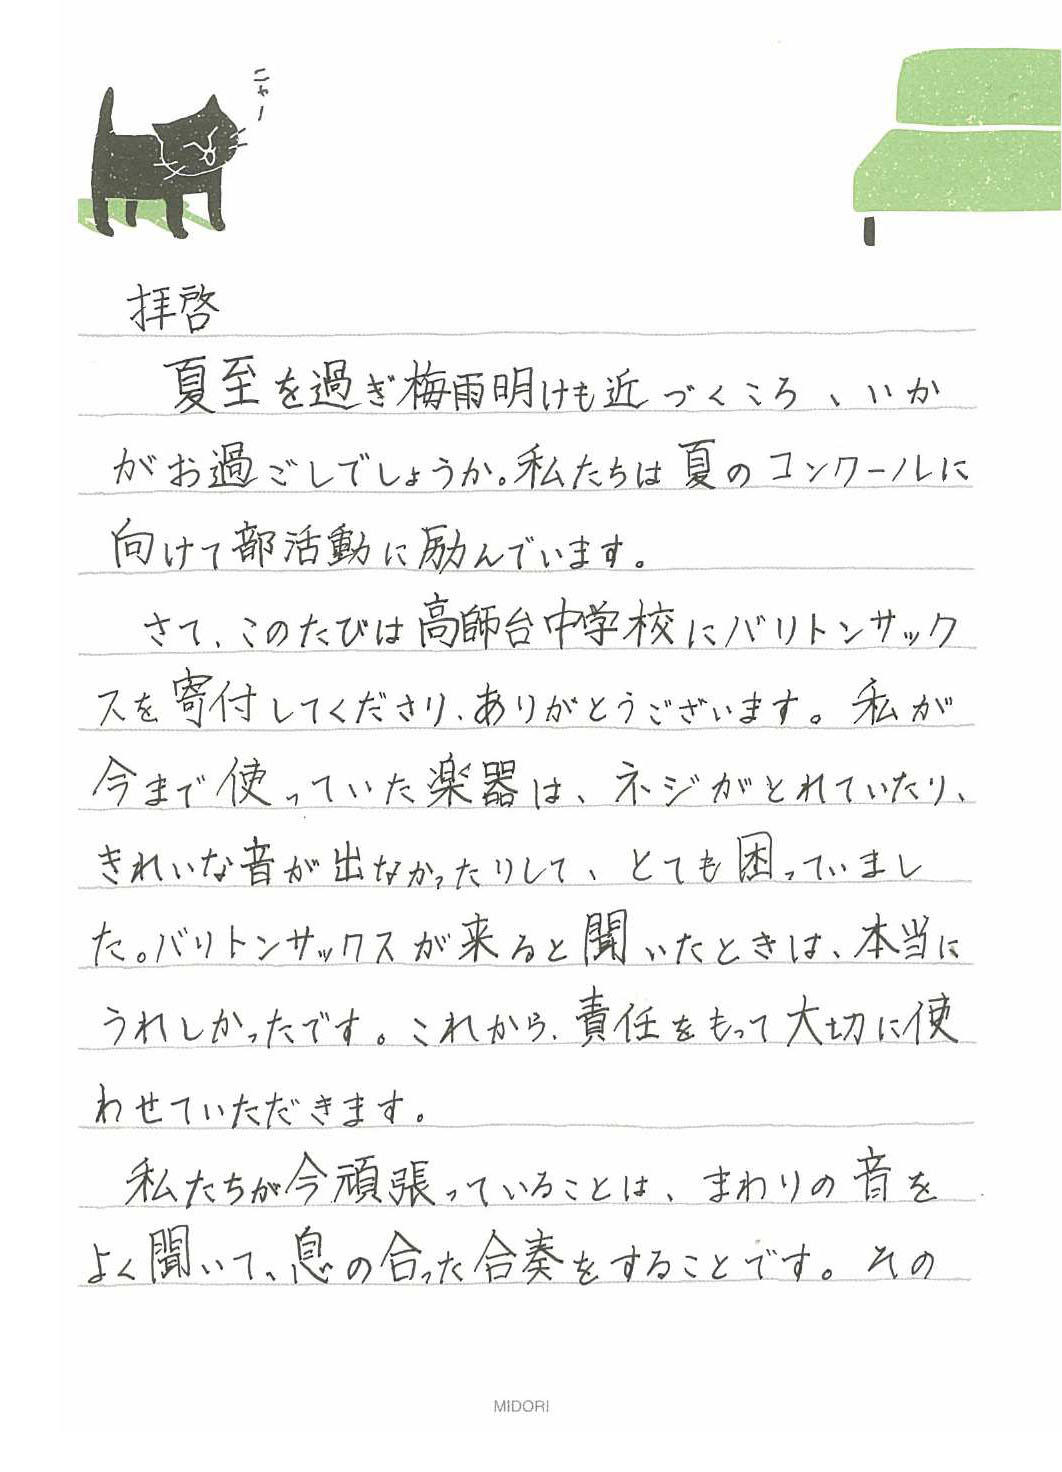 ニャー
拝啓
夏至を過ぎ梅雨明けも近づくころ、いか
がお過ごしでしょうか。私たちは夏のコンクールに
向けて部活動に励んでいます。
さて、このたびは高師台中学校にバリトンサック
スを寄付してくださり、ありがとうございます。私が
今まで使っていた楽器は、ネジがとれていたり、
きれいな音が出なかったりして、とても困っていまし
た。バリトンサックスが来ると聞いたときは、本当に
うれしかったです。これから、責任をもって大切に使
わせていただきます。
私たちが今頑張っていることは、まわりの音を
よく聞いて、息の合った合奏をすることです。その
MIDORI